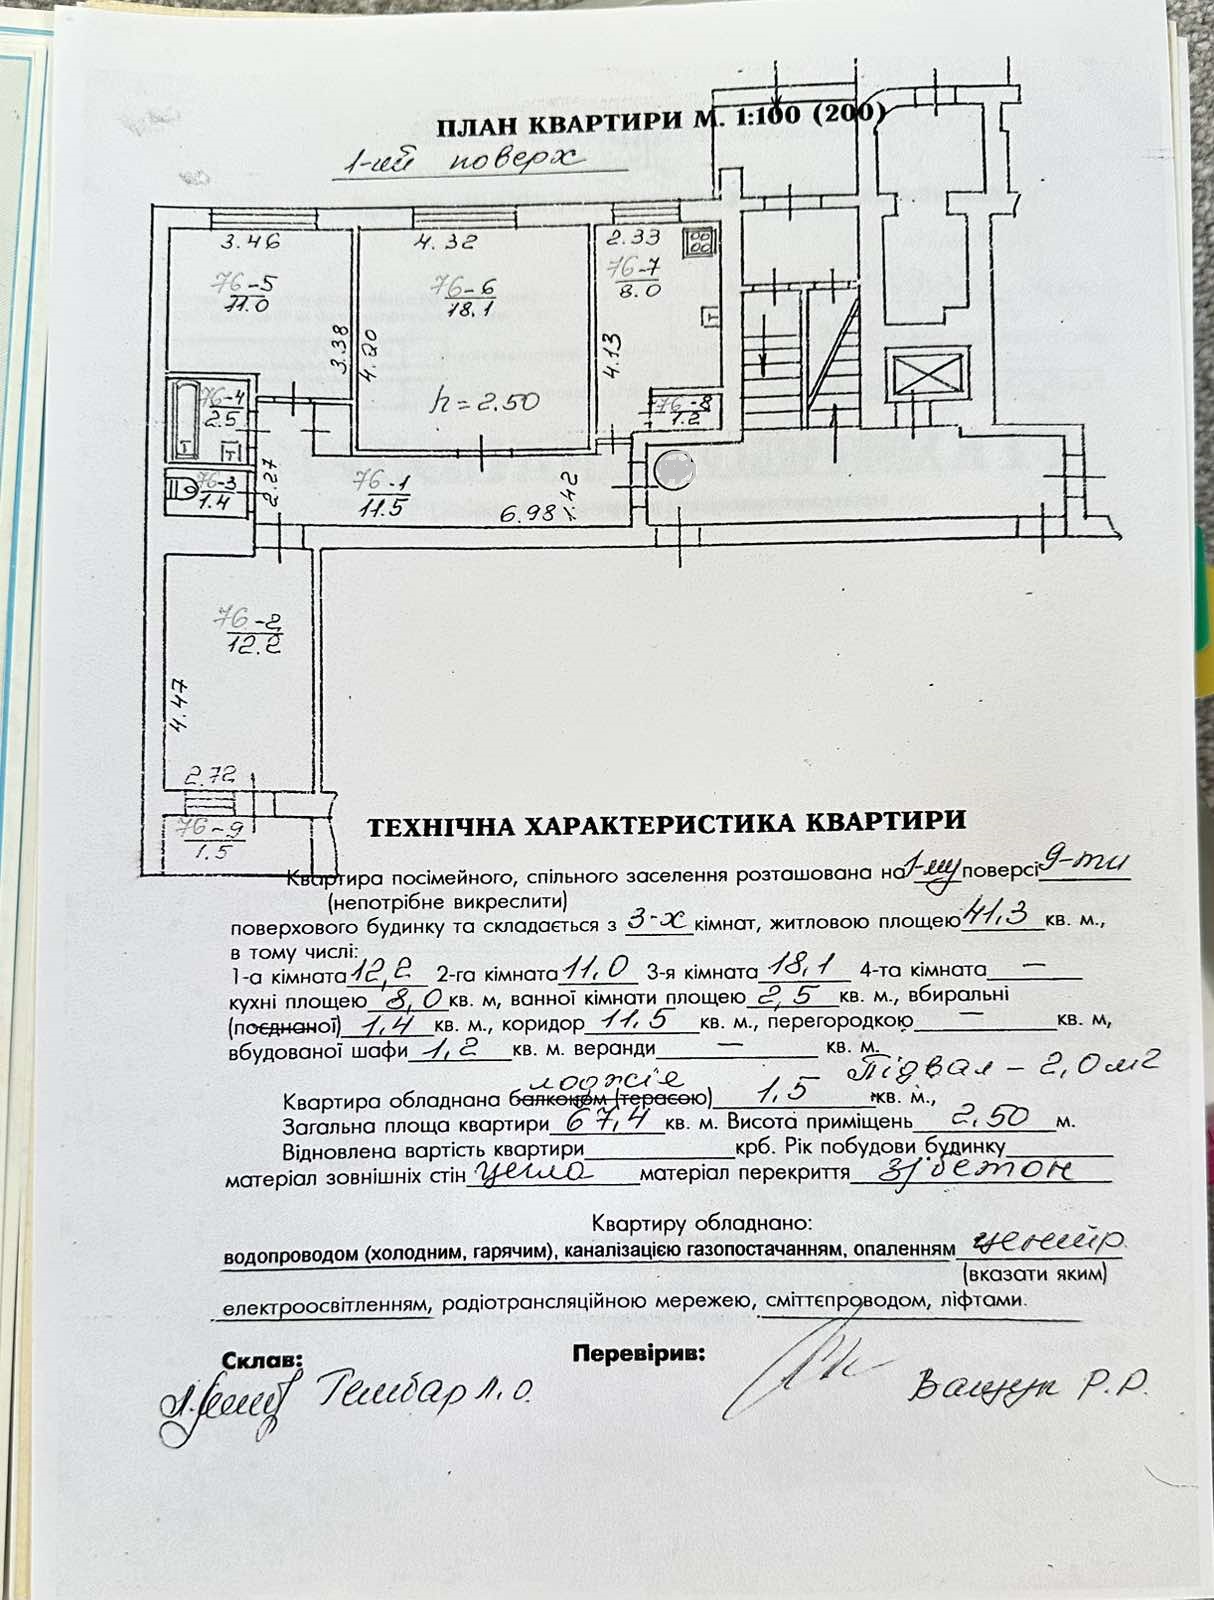 ПЛАН КВАРТИРИ М. 1:100 (200)
1-ий поверх
3.46
4.32
2.33
76-5
11.0
76-6
18.1
76-7
8.0
3.38
4.20
4.13
h = 2.50
76-4
2.5
76-8
1.2
Т
Т
Т
76-3
1.4
2.27
76-1
11.5
6.98
1.42
76-2
12.2
4.47
2.72
76-9
1.5
ТЕХНІЧНА ХАРАКТЕРИСТИКА КВАРТИРИ
Квартира посімейного, спільного заселення розташована на 1-му поверсі 9-ти
(непотрібне викреслити)
поверхового будинку та складається з 3-х кімнат, житловою площею 41,3 кв. м.,
в тому числі:
1-а кімната 12,2 2-га кімната 11,0 3-я кімната 18,1 4-та кімната —
кухні площею 8,0 кв. м, ванної кімнати площею 2,5 кв. м., вбиральні
(поєднаної) 1,4 кв. м., коридор 11.5 кв. м., перегородкою — кв. м,
вбудованої шафи 1,2 кв. м. веранди — кв. м.
Підвал – 2,0 м2
лоджія
Квартира обладнана балконом (терасою) 1,5 кв. м.,
Загальна площа квартири 67,4 кв. м. Висота приміщень 2,50 м.
Відновлена вартість квартири крб. Рік побудови будинку
матеріал зовнішніх стін цегла матеріал перекриття з/бетон
Квартиру обладнано:
водопроводом (холодним, гарячим), каналізацією газопостачанням, опаленням центр.
(вказати яким)
електроосвітленням, радіотрансляційною мережею, сміттєпроводом, ліфтами.
Склав:
Перевірив:
Гембар Л. О.
Ващук Р. Р.